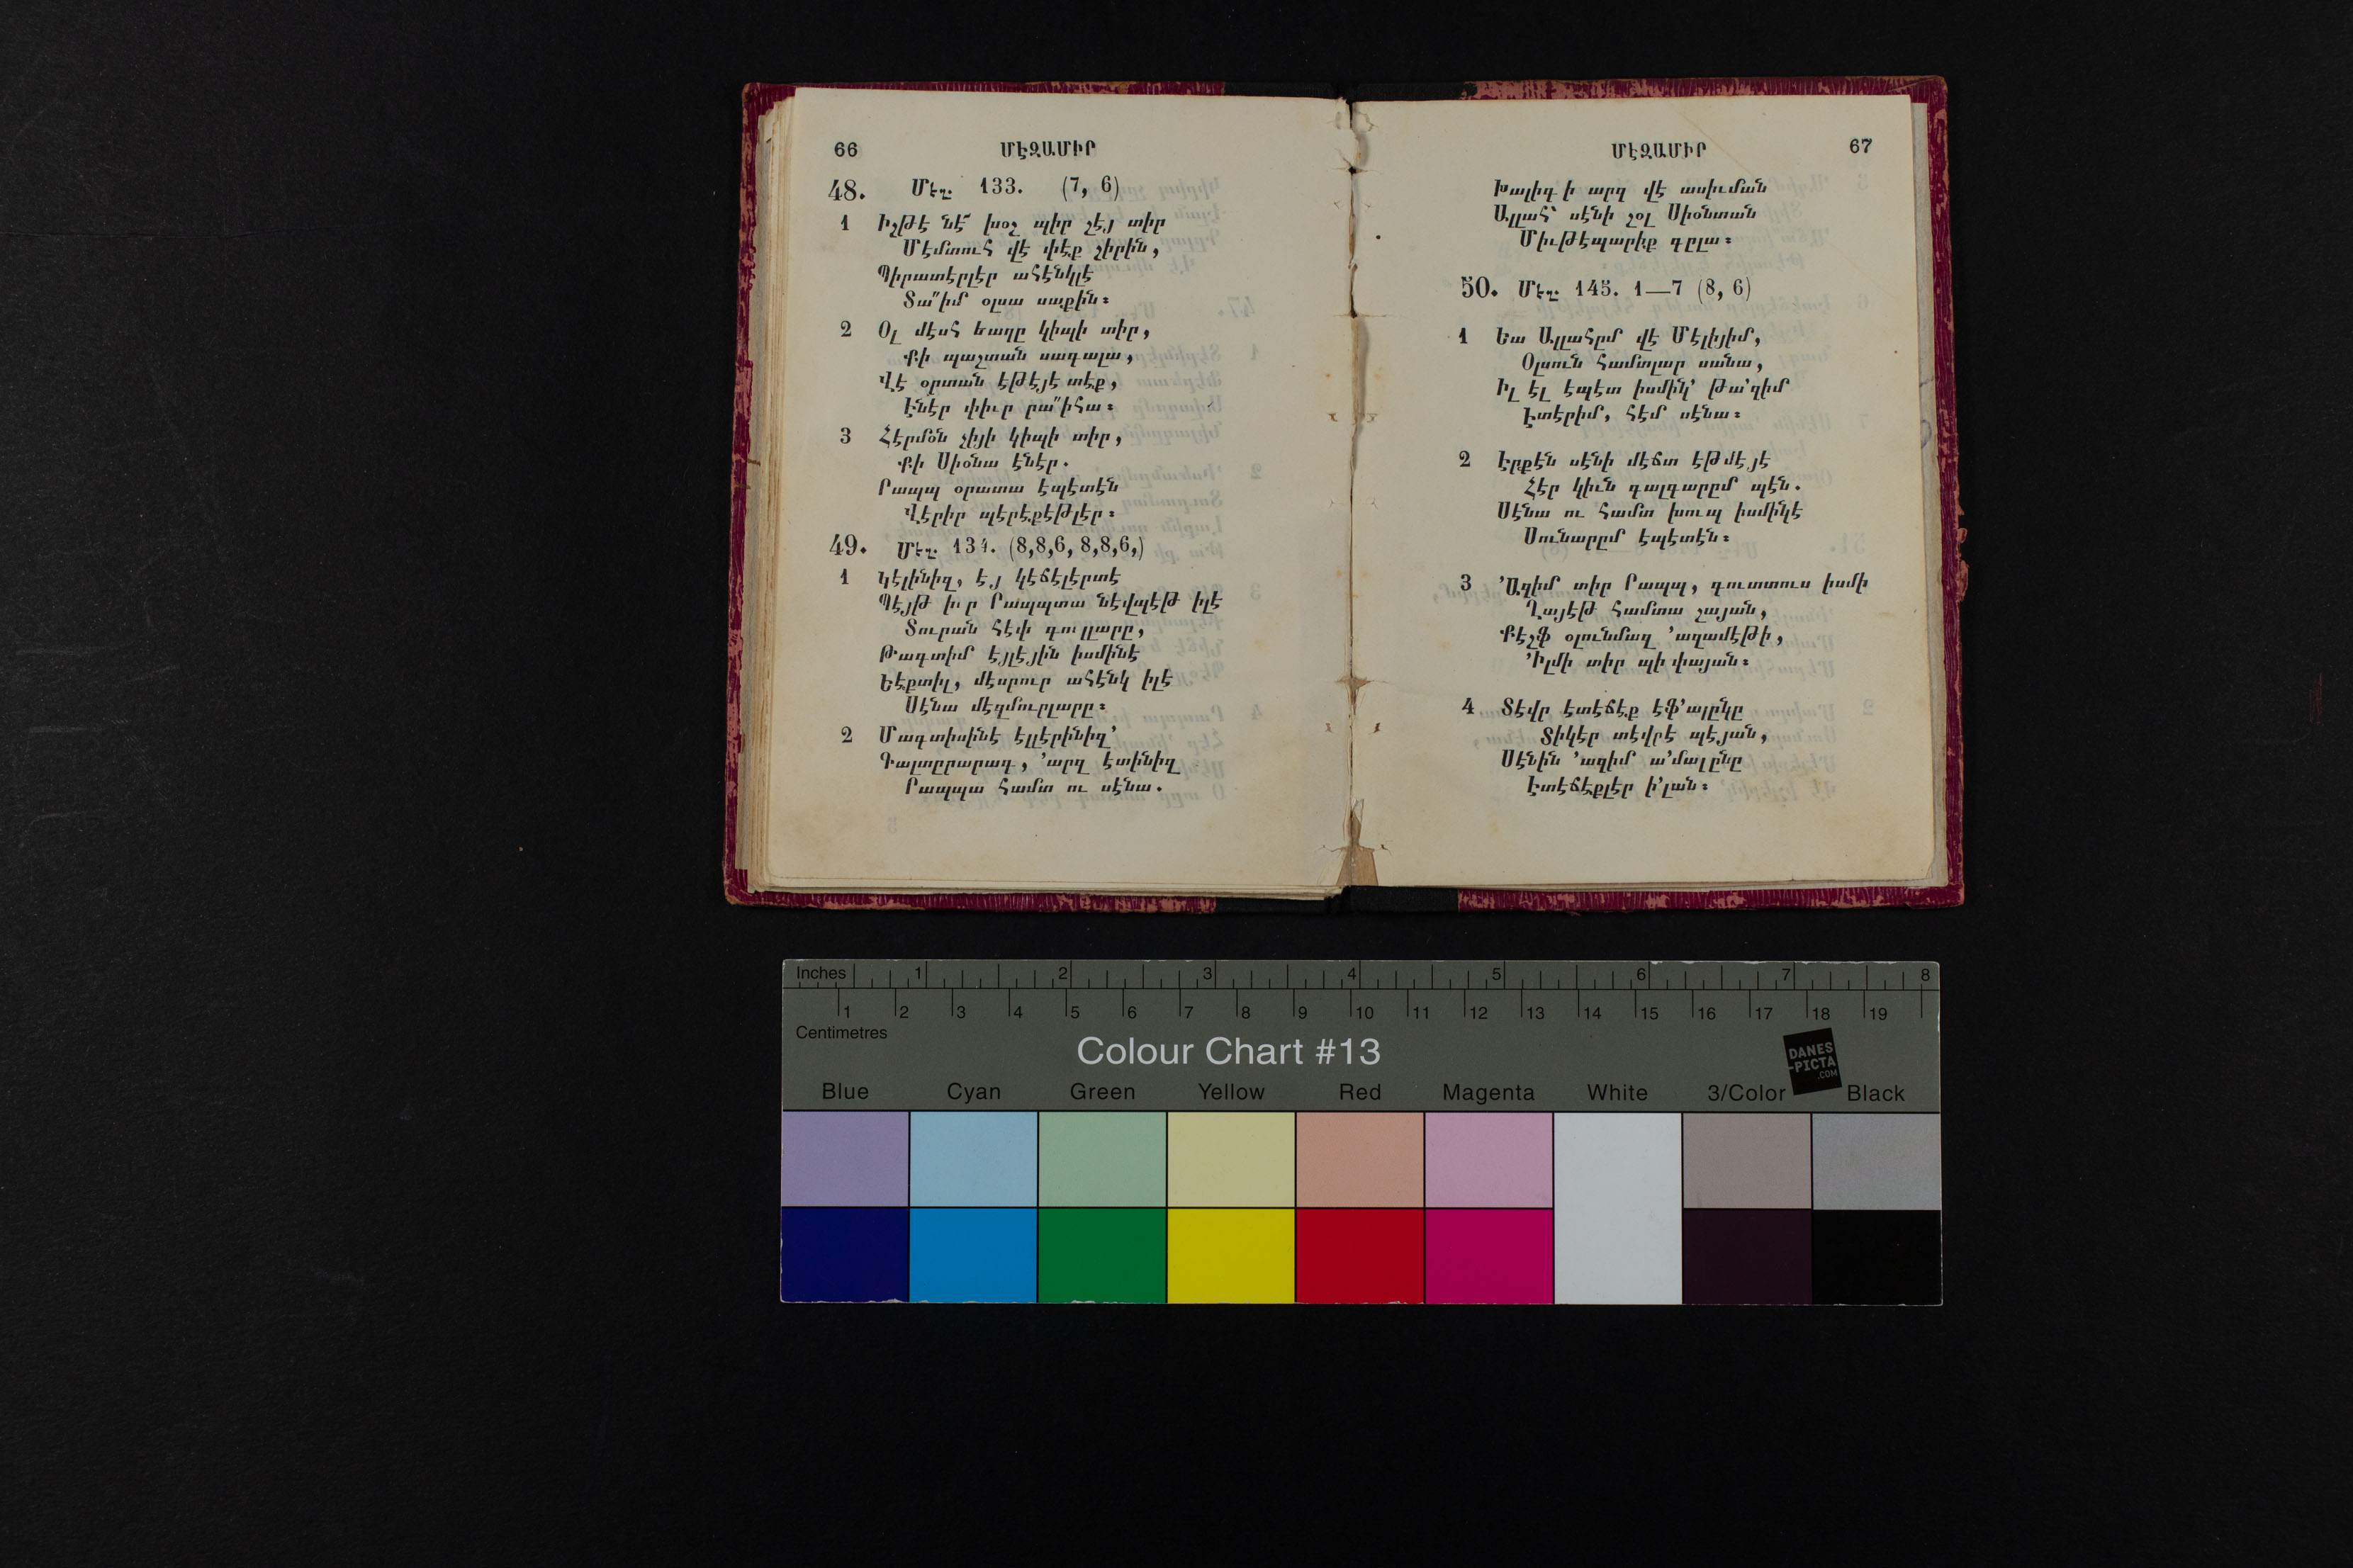 66 ՄԷԶԱՄԻՐ
48. Մեզ. 133. (7, 6)
1 Իշթէ նէ՜ խօշ պիր շէյ տիր
Մէմտուհ վէ փէք շիրին,
Պիրատէրլէր ահէնկլէ
Տա՛՛իմ օլսա սաքին։
2 Օլ մէսհ եաղը կիպի տիր,
Քի պաշտան սագալա,
Վէ օրտան էթէյէ տէք,
Էնէր փիւր րա՛՛իհա։
3 Հէրմօն չիյի կիպի տիր,
Քի Սիօնա էնէր.
Րապպ օրատա էպէտէն
Վէրիր պէրէքէթլէր։
49. Մեզ. 134. (8,8,6, 8,8,6,)
1 Կէլինիզ, էյ կէճէլէրտէ
Պէյթ իւր Րապպտա նէվպէթ իլէ
Տուրան հէփ գուլլարը,
Թագտիմ էյլէյին իսմինէ
Եէքտիլ, մէսրուր ահէնկ իլէ
Սէնա մէզմուրլարը։
2 Մագտիսինէ էլլէրինիզ՚
Գալտըրարագ, ՚արզ էտինիզ
Րապպա համտ ու սէնա.
ՄԷԶԱՄԻՐ 67
Խալիգ ի արզ վէ ասիւման
Ալլահ՝ սէնի շօլ Սիօնտան
Միւթէպարիք գըլա։
50. Մեզ. 145. 1—7 (8, 6)
1 Եա Ալլահըմ վէ Մէլիյիմ,
Օլսուն համտլար սանա,
Իլ էլ էպէտ իսմին՚ թա՚զիմ
Էտէրիմ, հէմ սէնա։
2 Էրքէն սէնի մէճտ էթմէյէ
Հէր կիւն գալգարըմ պէն.
Սէնա ու համտ խուպ իսմինէ
Սունարըմ էպէտէն։
3 ՚Ազիմ տիր Րապպ, գուտտուս իսմի
Ղայէթ համտա շայան,
Քէշֆ օլունմազ ՚ազամէթի,
՚Իլմի տիր պի փայան։
4 Տէվր էտէճէք էֆ՚ալընը
Տիկէր տէվրէ պէյան,
Սէնին ՚ազիմ ա՚մալընը
Էտէճէքլէր ի՚լան։
Inches 1 2 3 4 5 6 7 8
1 2 3 4 5 6 7 8 9 10 11 12 13 14 15 16 17 18 19
Centimetres
Colour Chart #13
DANES
-PICTA
.COM
Blue Cyan Green Yellow Red Magenta White 3/Color Black